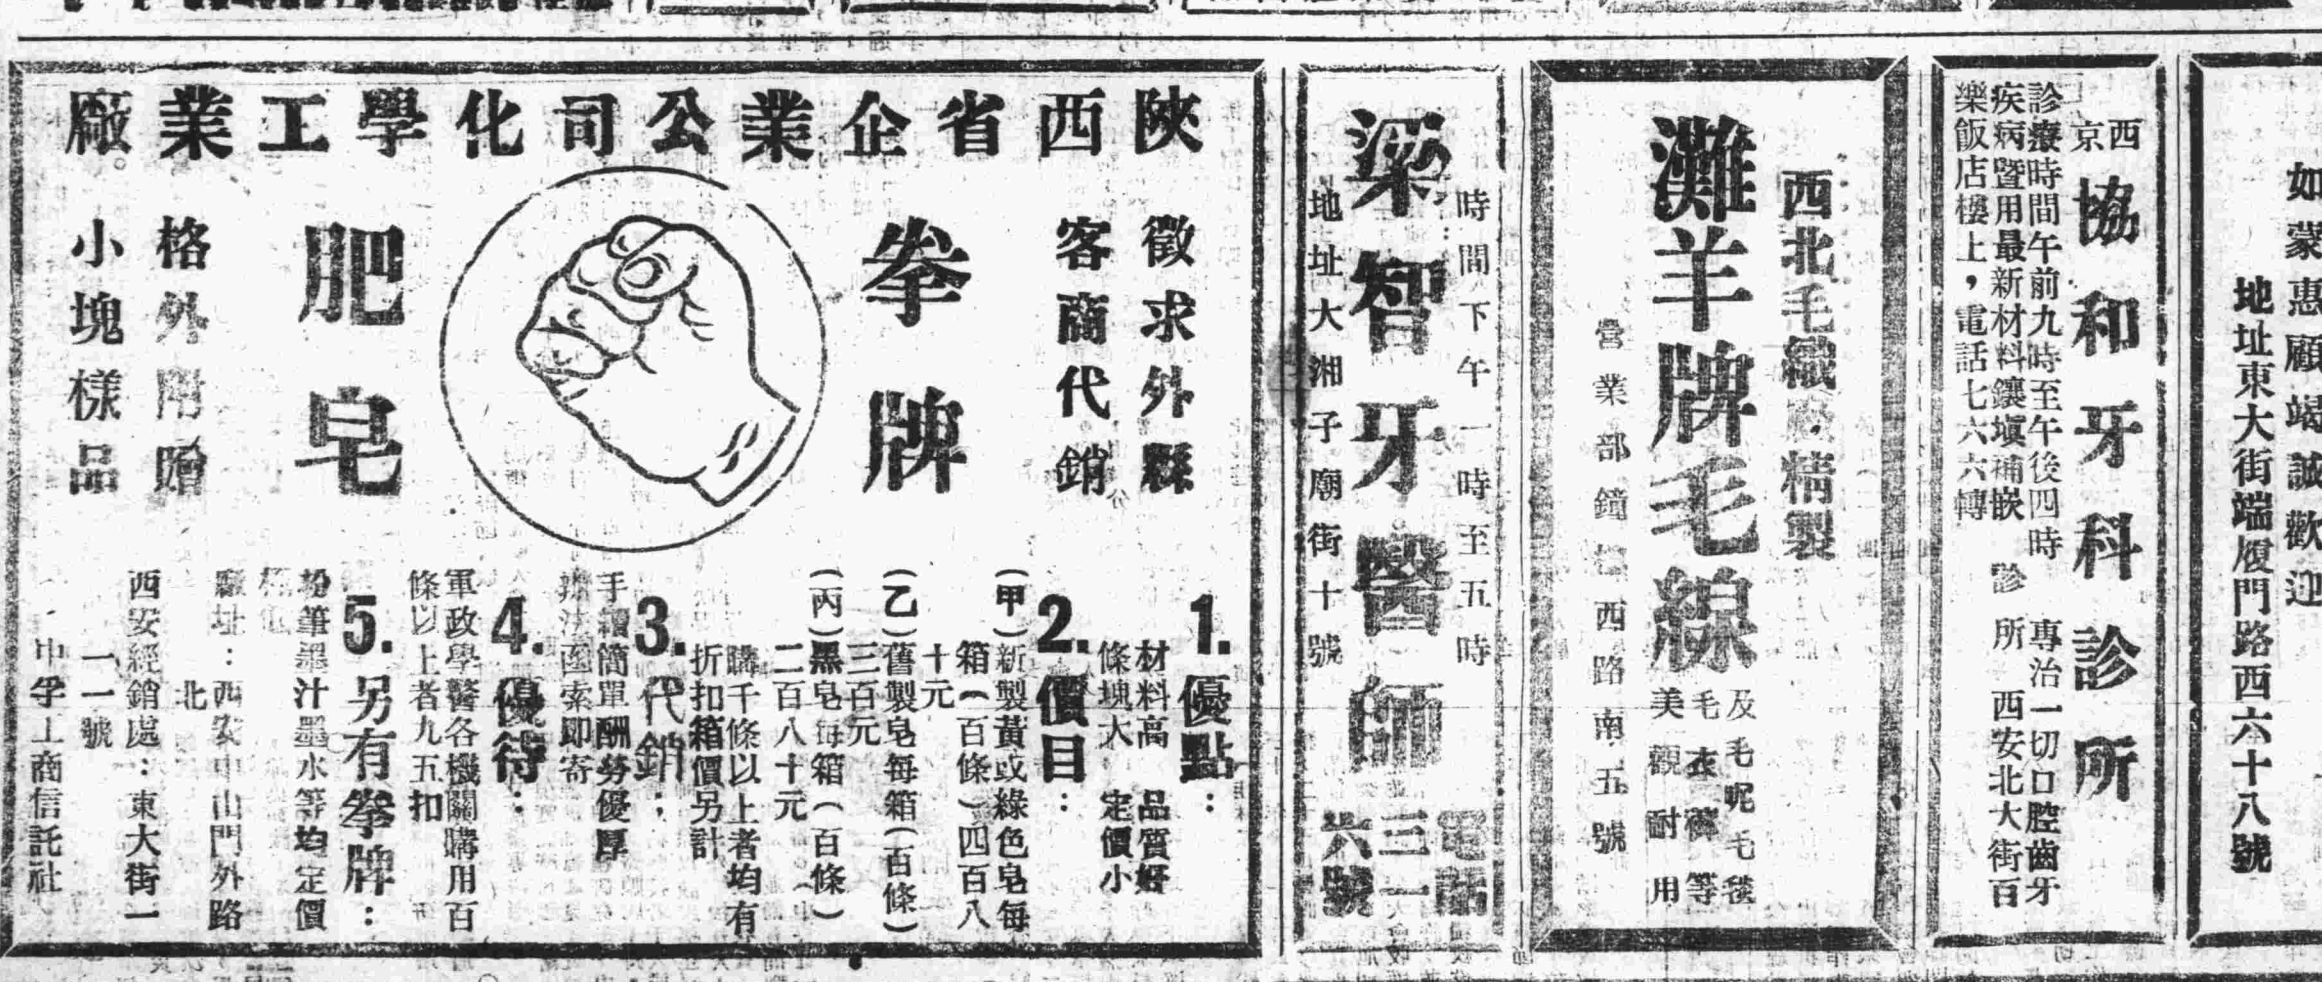 如蒙惠顧竭誠歡迎
地址東大街端履門路西六十八號
西京
協和牙科診所
診療時間午前九時至午後四時 專治一切口腔齒牙
疾病暨用最新材料鑲填補嵌 診所 西安北大街百
樂飯店樓上，電話七六六轉
西北毛織 精製
灘羊牌毛線
及毛呢毛毯
毛衣褲等
美觀耐用
營業部鐘 西路南五號
時間：下午一時至五時
梁智牙醫師
地址大湘子廟街十號
電話
三一
六號
陝西省企業公司化學工業廠。
徵求外縣
客商代銷
拳牌
肥皂
格外附贈
小塊樣品
1.優點：
材料高 品質好
條塊大 定價小
2.價目：
(甲)新製黃或綠色皂每
箱(百條)四百八
十元
(乙)舊製皂每箱(百條)
三百元
(丙)黑皂每箱(百條)
二百八十元
購千條以上者均有
折扣箱價另計
3.代銷：
手續簡單酬勞優厚
辦法函索即寄
4.優待：
軍政學醫各機關購用百
條以上者九五扣
5.另有拳牌：
粉筆墨汁墨水等均定價
廠址：西安中山門外路
北
西安經銷處：東大街一
一一號
中孚工商信託社